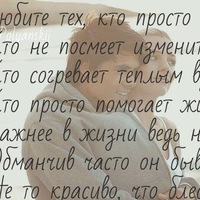 юбите тех, кто просто
то не посмеет изменит
то согревает теплым в
то просто помогает жи
ажнее в жизни ведь н
Обманчив часто он быв
Не то красиво, что блес